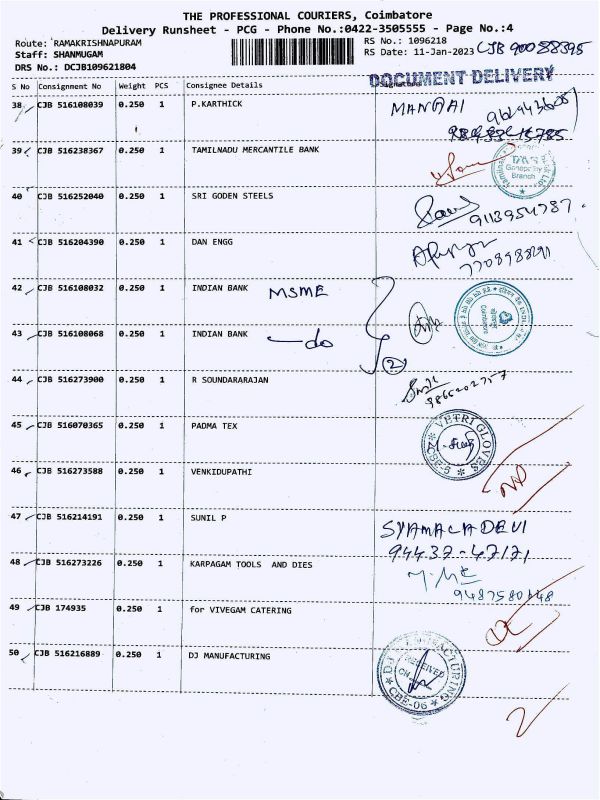 THE PROFESSIONAL COURIERS, Coimbatore
Delivery Runsheet - PCG - Phone No.:0422-3505555 - Page No.:4
Route: RAMAKRISHNAPURAM
RS No.: 1096218
Staff: SHANMUGAM
RS Date: 11-Jan-2023 CJB 90088395
DRS No.: DCJB109621804
DOCUMENT DELIVERY
S No Consignment No Weight PCS Consignee Details Signature
38 CJB 516108039 0.250 1 P.KARTHICK
39 CJB 516238367 0.250 1 TAMILNADU MERCANTILE BANK
Ganapathy Branch
40 CJB 516252040 0.250 1 SRI GODEN STEELS
9113954787
41 CJB 516204390 0.250 1 DAN ENGG
42 CJB 516108032 0.250 1 INDIAN BANK MSME
43 CJB 516108068 0.250 1 INDIAN BANK do
2
44 CJB 516273900 0.250 1 R SOUNDARARAJAN
45 CJB 516070365 0.250 1 PADMA TEX
VETRI GLOVES
46 CJB 516273588 0.250 1 VENKIDUPATHI
47 CJB 516214191 0.250 1 SUNIL P
SYAMALA DEVI
94437-47171
48 CJB 516273226 0.250 1 KARPAGAM TOOLS AND DIES
9487580148
49 CJB 174935 0.250 1 for VIVEGAM CATERING
50 CJB 516216889 0.250 1 DJ MANUFACTURING
DJ MANUFACTURING
RECEIVED
CBE-06